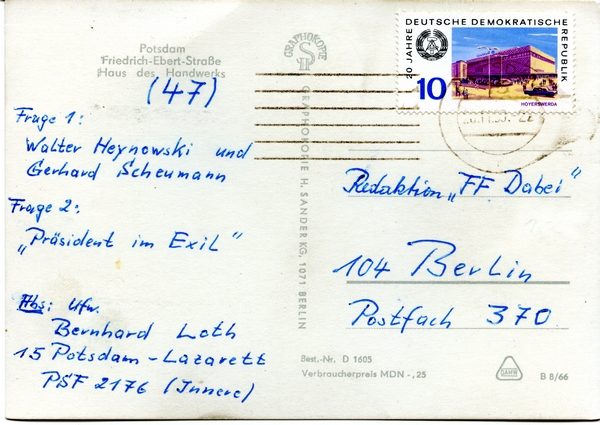 Potsdam
Friedrich-Ebert-Straße
Haus des Handwerks
(47)
Frage 1:
Walter Heynowski und
Gerhard Scheumann
Frage 2:
„Präsident im Exil"
Abs: Ufw.
Bernhard Loth
15 Potsdam-Lazarett
PSF 2176 (Innere)
GRAPHOKOPIE
GRAPHOKOPIE H. SANDER KG, 1071 BERLIN
20 JAHRE DEUTSCHE DEMOKRATISCHE REPUBLIK
10
HOYERSWERDA
Redaktion „FF Dabei"
104 Berlin
Postfach 370
Best.-Nr. D 1605
Verbraucherpreis MDN -,25
B 8/66